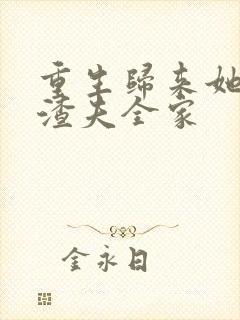 重生歸来她
渣夫全家
金永日